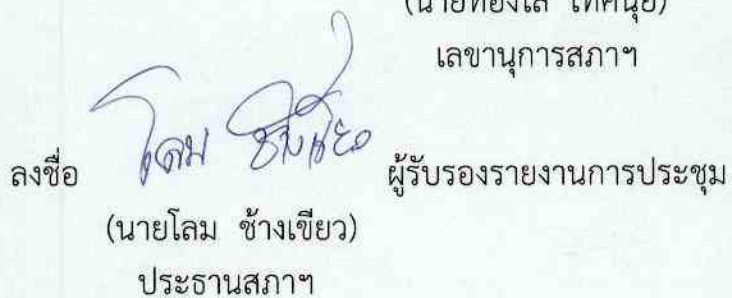 เลขานุการสภาฯ
ลงชื่อ โลม ช้างเขียว ผู้รับรองรายงานการประชุม
(นายโลม ช้างเขียว)
ประธานสภาฯ